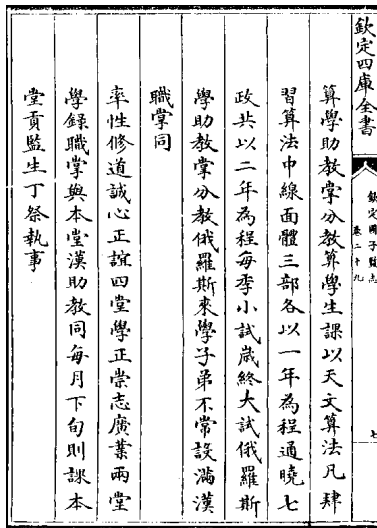 欽定四庫全書
欽定國子監志
卷二十九
七
算學助教掌分教算學生課以天文算法凡肄
習算法中線面體三部各以一年為程通曉七
政共以二年為程每季小試歲終大試俄羅斯
學助教掌分教俄羅斯來學子弟不常設滿漢
職掌同
率性修道誠心正誼四堂學正崇志廣業兩堂
學錄職掌與本堂漢助教同每月下旬則課本
堂貢監生丁祭執事